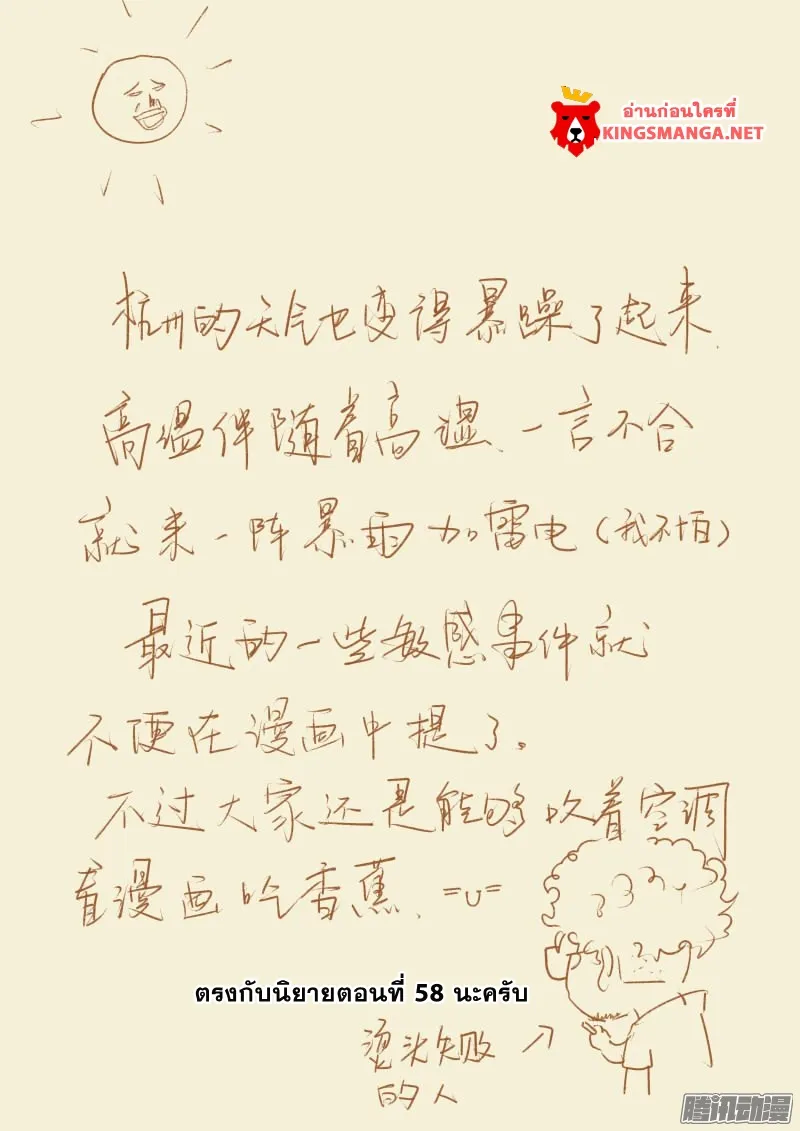 อ่านก่อนใครที่
KINGSMANGA.NET
杭州的天气也变得暴躁了起来.
高温伴随着高湿、一言不合
就来一阵暴雨加雷电(我不怕)
最近的一些敏感事件就
不便在漫画中提了。
不过大家还是能够吹着空调
看漫画吃香蕉. =u=
ตรงกับนิยายตอนที่ 58 นะครับ
烫头失败
的人
腾讯动漫